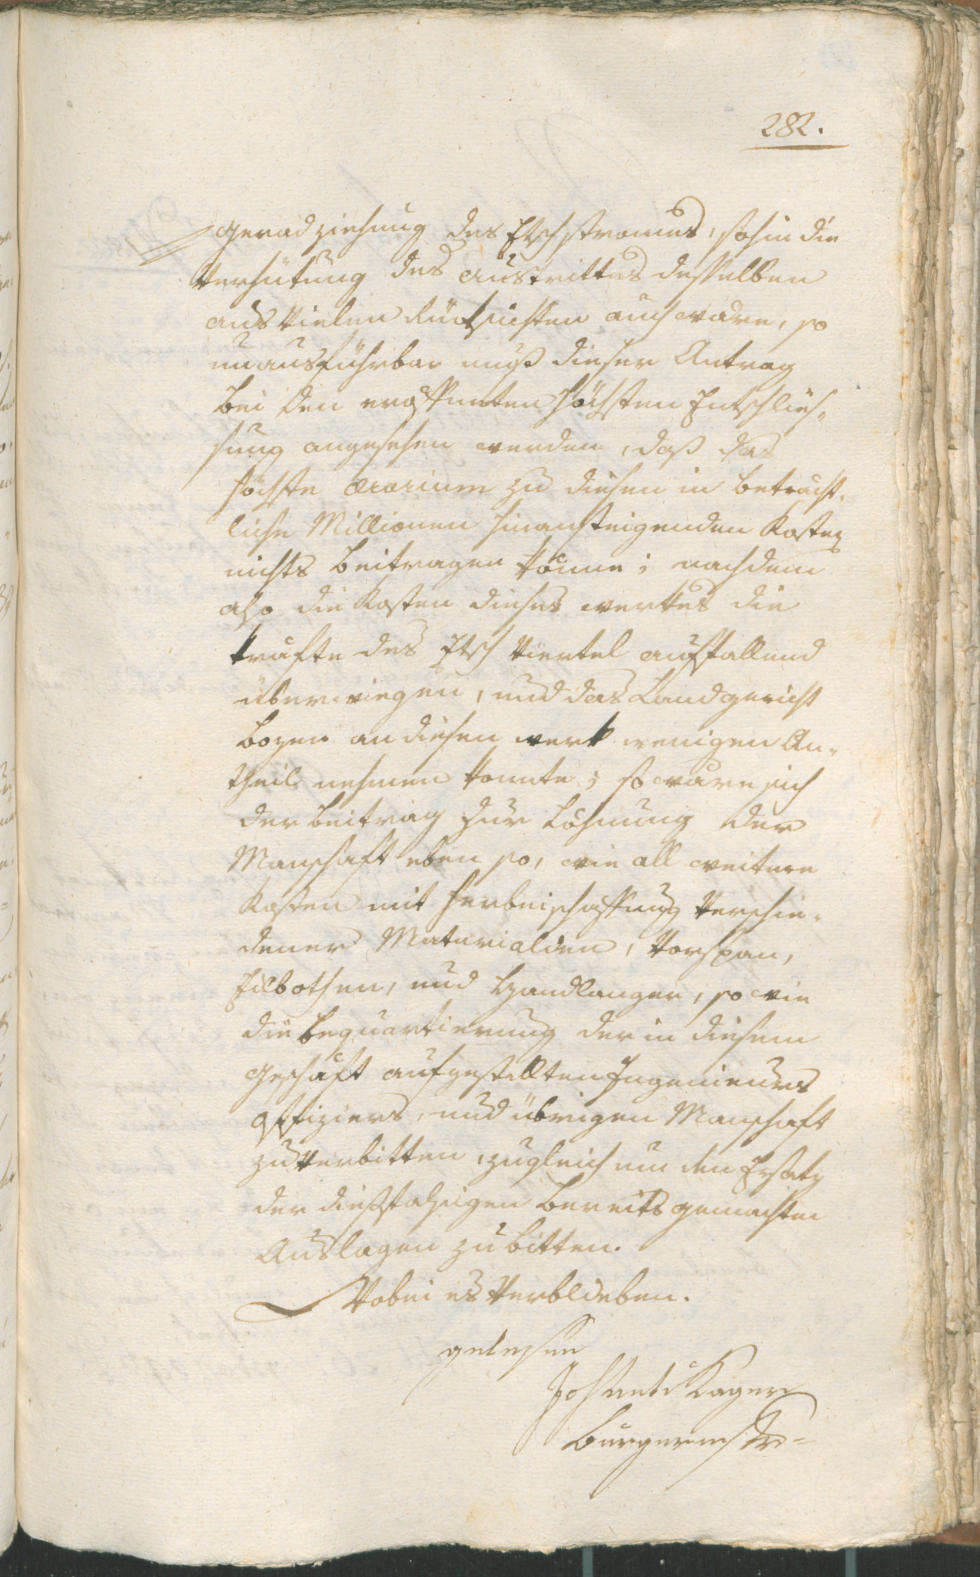 282.
Geradziehung des Etschstromes, sohin die
Verhütung des Austrittes desselben
aus vielen Rücksichten auch wäre, so
unausführbar muß dieser Antrag
bei den eröffneten höchsten Entschlies-
sung angesehen werden, daß das
höchste Ærarium zu diesen in beträcht-
liche Millionen hinansteigenden Kosten
nichts beitragen könne; nachdem
also die Kosten dieses Werkes die
Kräfte des Etsch Viertel auffallend
überwiegen, und das Landgericht
Bozen an diesen Werk wenigen An-
theil nehmen konnte; so wäre sich
der Beitrag zur Löhnung der
Manschaft eben so, wie all weitere
Kosten mit Herbeischaffung verschie-
dener Materialien, Vorspan,
Eilbothen, und Handlanger, so wie
die Bequartierung der in diesem
Geschäft aufgestellten Ingenieurs
Offiziers, und übrigen Manschaft
zu verbitten, zugleich um den Ersatz
der dießfahligen bereits gemachten
Auslagen zu bitten.
Wobei es verblieben.
gelesen
Joh Kager
Burgermstr